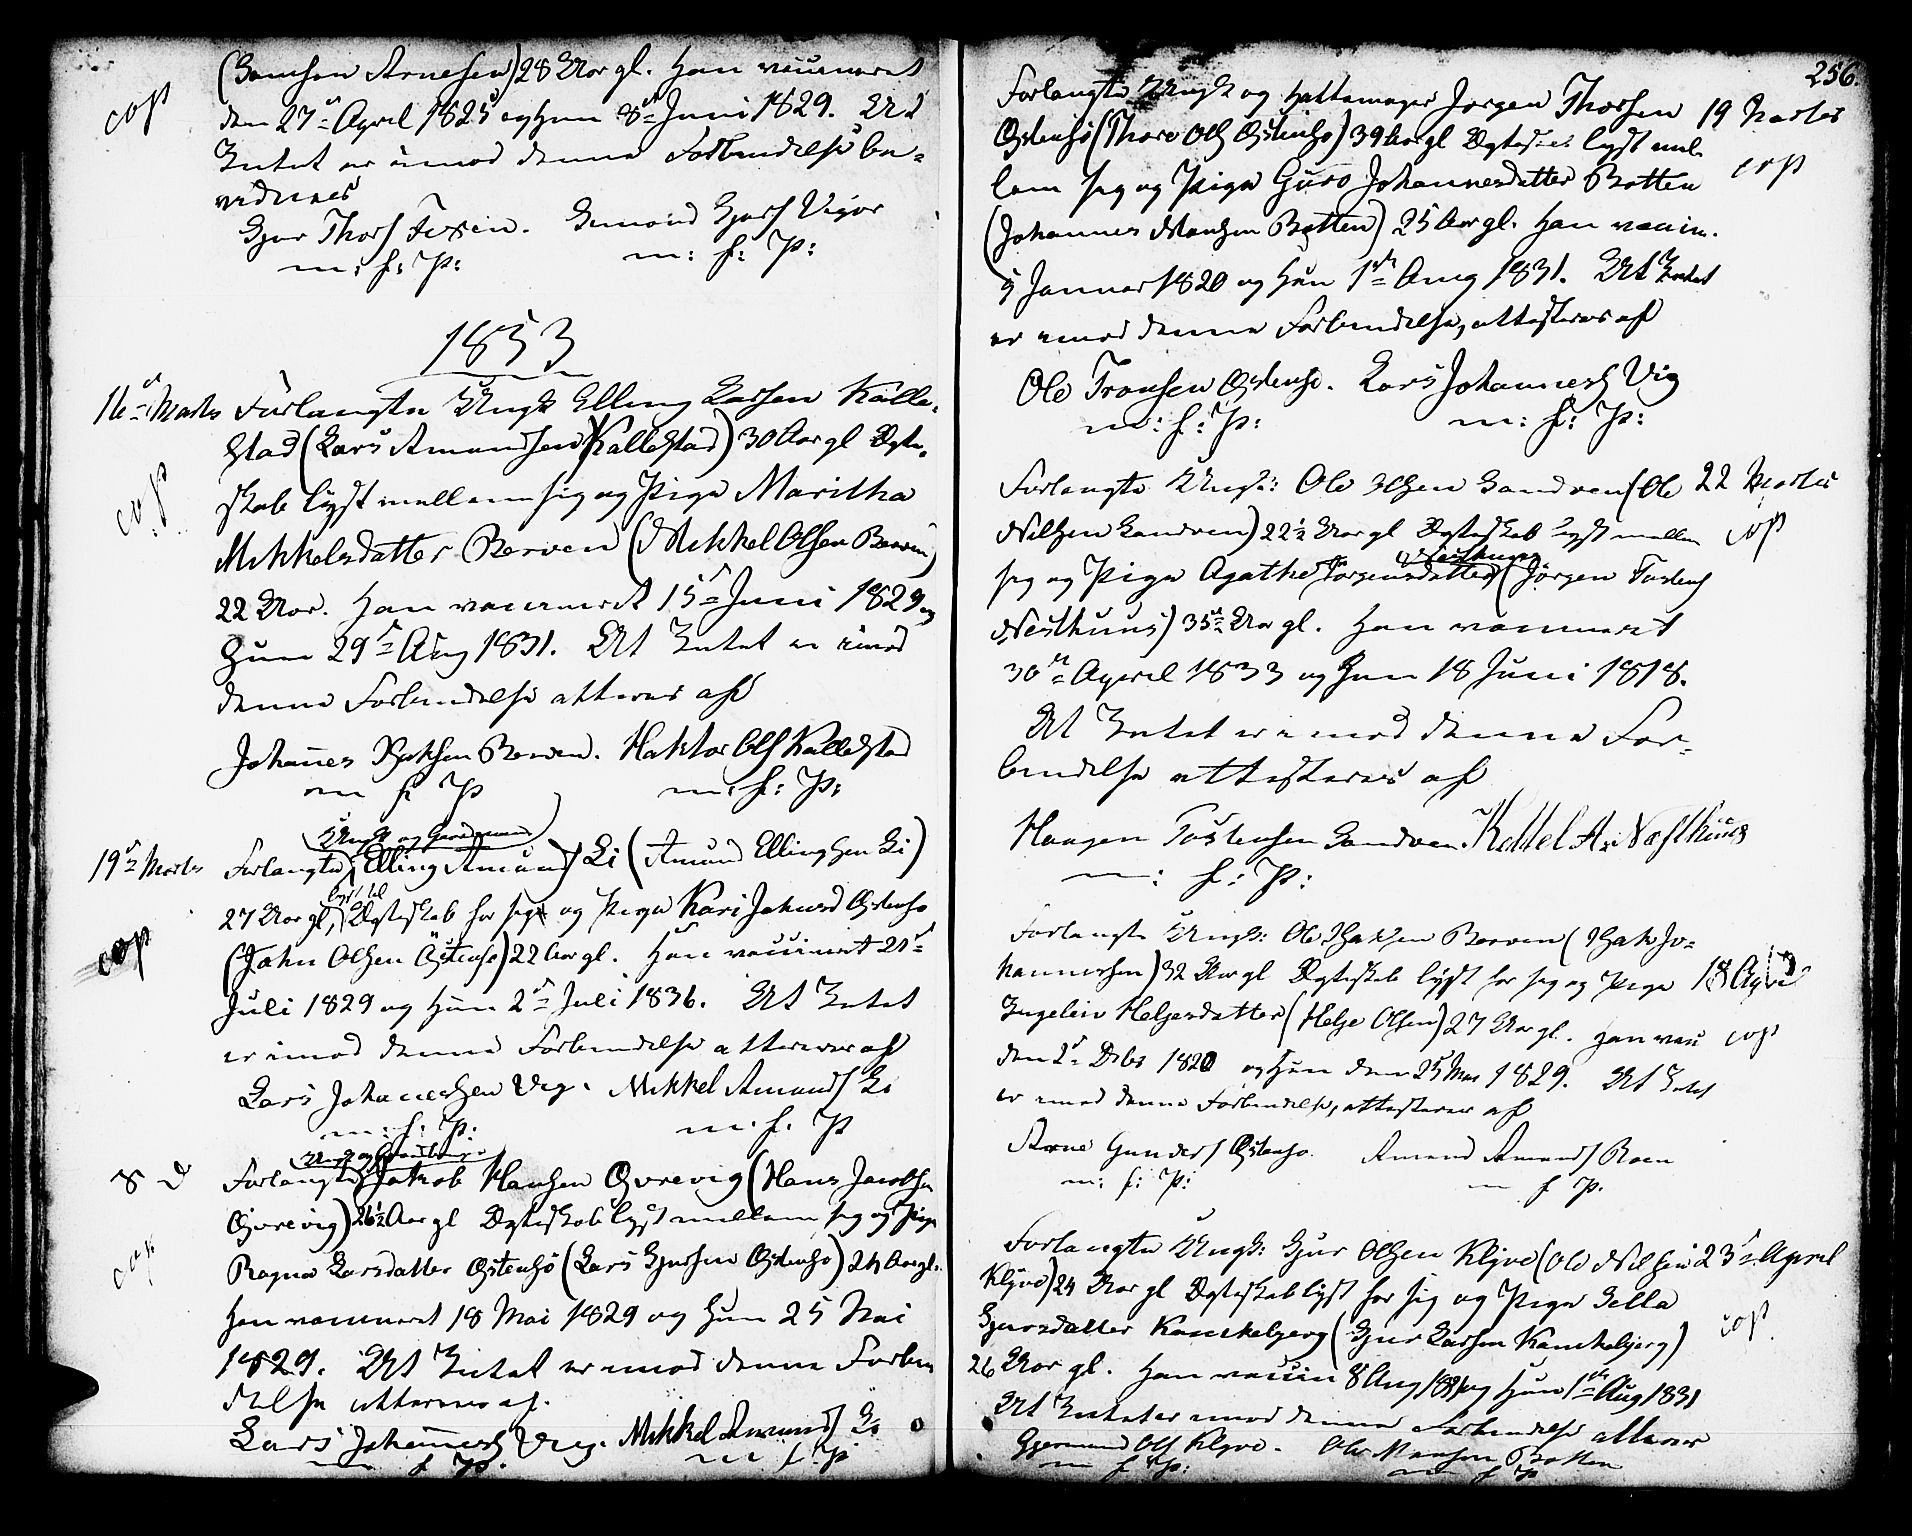 (Samson Arnesen) 28 Aar gl. Han vaccineret
cop
den 27de April 1825 og Hun 8de Juni 1829. At
Intet er imod denne Forbindelse be-
vidnes
Sjur Thors
m: f: P:
Gemond Sjurs Vigør
m: f: P:
1853
16de Marts
Forlangte Ungk Elling Larsen Kalle-
stad (Lars Amundsen Kallestad) 30 Aar gl Ægte-
cop
skab lyst mellem sig og Pige Maritha
Mikkelsdatter Berven (Mikkel Olsen Berven)
22 Aar. Han vaccineret 15de Juni 1829 og
Hun 29de Aug 1831. At Intet er imod
denne Forbindelse atteres af
Johannes Berven. Haktor Ols Kallestad
m f P m: f: P:
Ungk og Gaardmand
19de Marts
Forlangte Elling Amunds Li (Amund Ellingsen Li)
lyst til
27 Aar gl, Ægteskab for sig og Pige Kari Johnsd Østensø
cop
(John Olsen Østensø) 22 Aar gl. Han vaccineret 21de
Juli 1829 og Hun 2de Juli 1836. At Intet
er imod denne Forbindelse atteres af
Lars Johannessen Vig. Mikkel Amunds Li
m: f: P: m. f. P
S D
Forlangte Jakob Hansen Øvrevig (Hans Jacobsen
Øvrevig) 26½ Aar gl Ægteskab lyst mellem sig og Pige
cop
Ragna Larsdatter Østensø (Lars Sjursen Østensø) 24 Aar gl.
Han vaccineret 18 Mai 1829 og Hun 25 Mai
1829. At Intet er imod denne Forbin
delse atteres af.
Lars Johanness Vig. Mikkel Amunds Li
m f P. m f P
256.
Forlangte Ungk og Hattemager Jørgen Thorsen
19 Marts
Østensø (Thore Ols Østensø) 39 Aar gl Ægteskab lyst mel-
cop
lem sig og Pige Guro Johannesdatter Botten
(Johannes Monsen Botten) 25 Aar gl. Han vaccin.
9 Januar 1820 og Hun 1ste Aug 1831. At Intet
er imod denne Forbindelse, attesteres af
Ole Tronsen Østensø. Lars Johanness Vig
m: f: P: m: f: P:
Forlangte Ungk: Ole Olsen Sandven (Ole
22 Marts
Nilsen Sandven) 22½ Aar gl Ægteskab lyst mellem
cop
Nesthuus
sig og Pige Agathe Jørgensdatter (Jørgen Torstens
Nesthuus) 35te Aar gl. Han vaccineret
30te April 1833 og Hun 18 Juni 1818.
At Intet er imod denne For-
bindelse attesteres af
Haagen Tostensen Sandven. Kettel A: Næsthuus
m: f: P:
Forlangte Ungk: Ole Isaksen Berven (Isak Jo-
hannessen) 32 Aar gl Ægteskab lyst for sig og Pige
18 April
Ingeleiv Helgesdatter (Helge Olsen) 27 Aar gl. Han vac
cop
den 2de Decbr 1820 og Hun den 25 Mai 1829. At Intet
er imod denne Forbindelse, attesteres af
Arne Gunders Østensø. Amund Amunds Roen
m: f: P: m f P.
Forlangte Ungk: Sjur Olsen Kljve (Ole Nilsen
23de April
Kljve) 24 Aar gl Ægteskab lyst for sig og Pige Sella
cop.
Sjursdatter Kanckebjerg (Sjur Larsen Kanckebjerg)
26 Aar gl. Han vaccin 8 Aug 1831 og Hun 1ste Aug 1831
At Intet er imod denne Forbindelse atteres
Gjermund Ols Kljve. Ole Monsen Botten
m f P: m f P